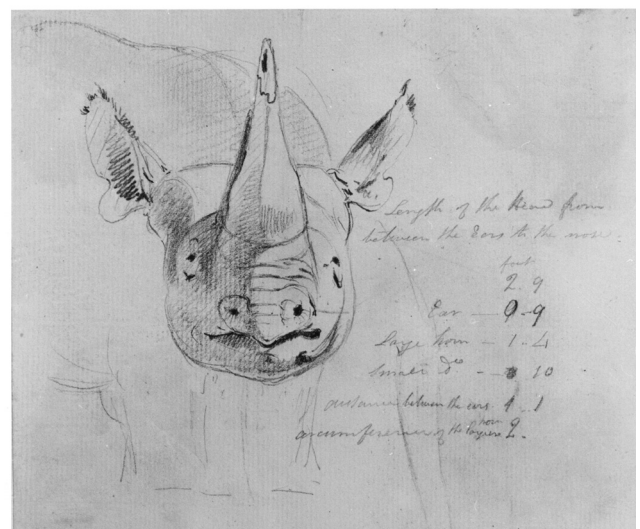 Length of the Head from
between the Ears to the nose
feet
2 9
Ear — 0 - 9
Large horn - 1 - 4
Smaller do - - 0 10
distance between the ears 1 . 1
circumference of the larger horn 2 .